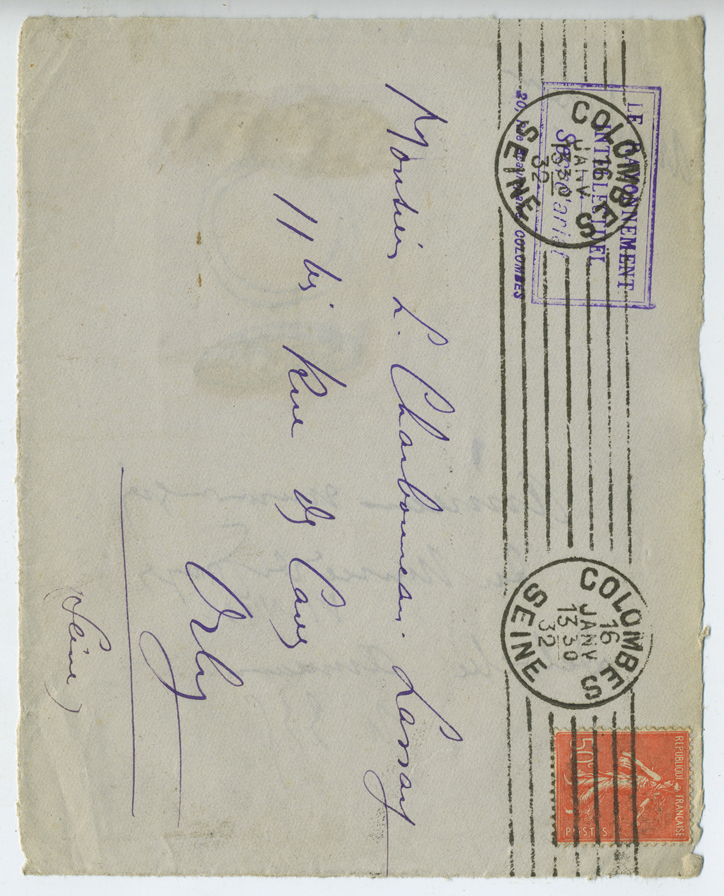 LE RAYONNEMENT
INTELLECTUEL
COLOMBES
COLOMBES
16
JANV
13 30
32
SEINE
COLOMBES
16
JANV
13 30
32
SEINE
REPUBLIQUE FRANÇAISE
50c
POSTES
Monsieur L. Charbonneau-Lassay
11 bis Rue des Caves
Orly
(Seine)